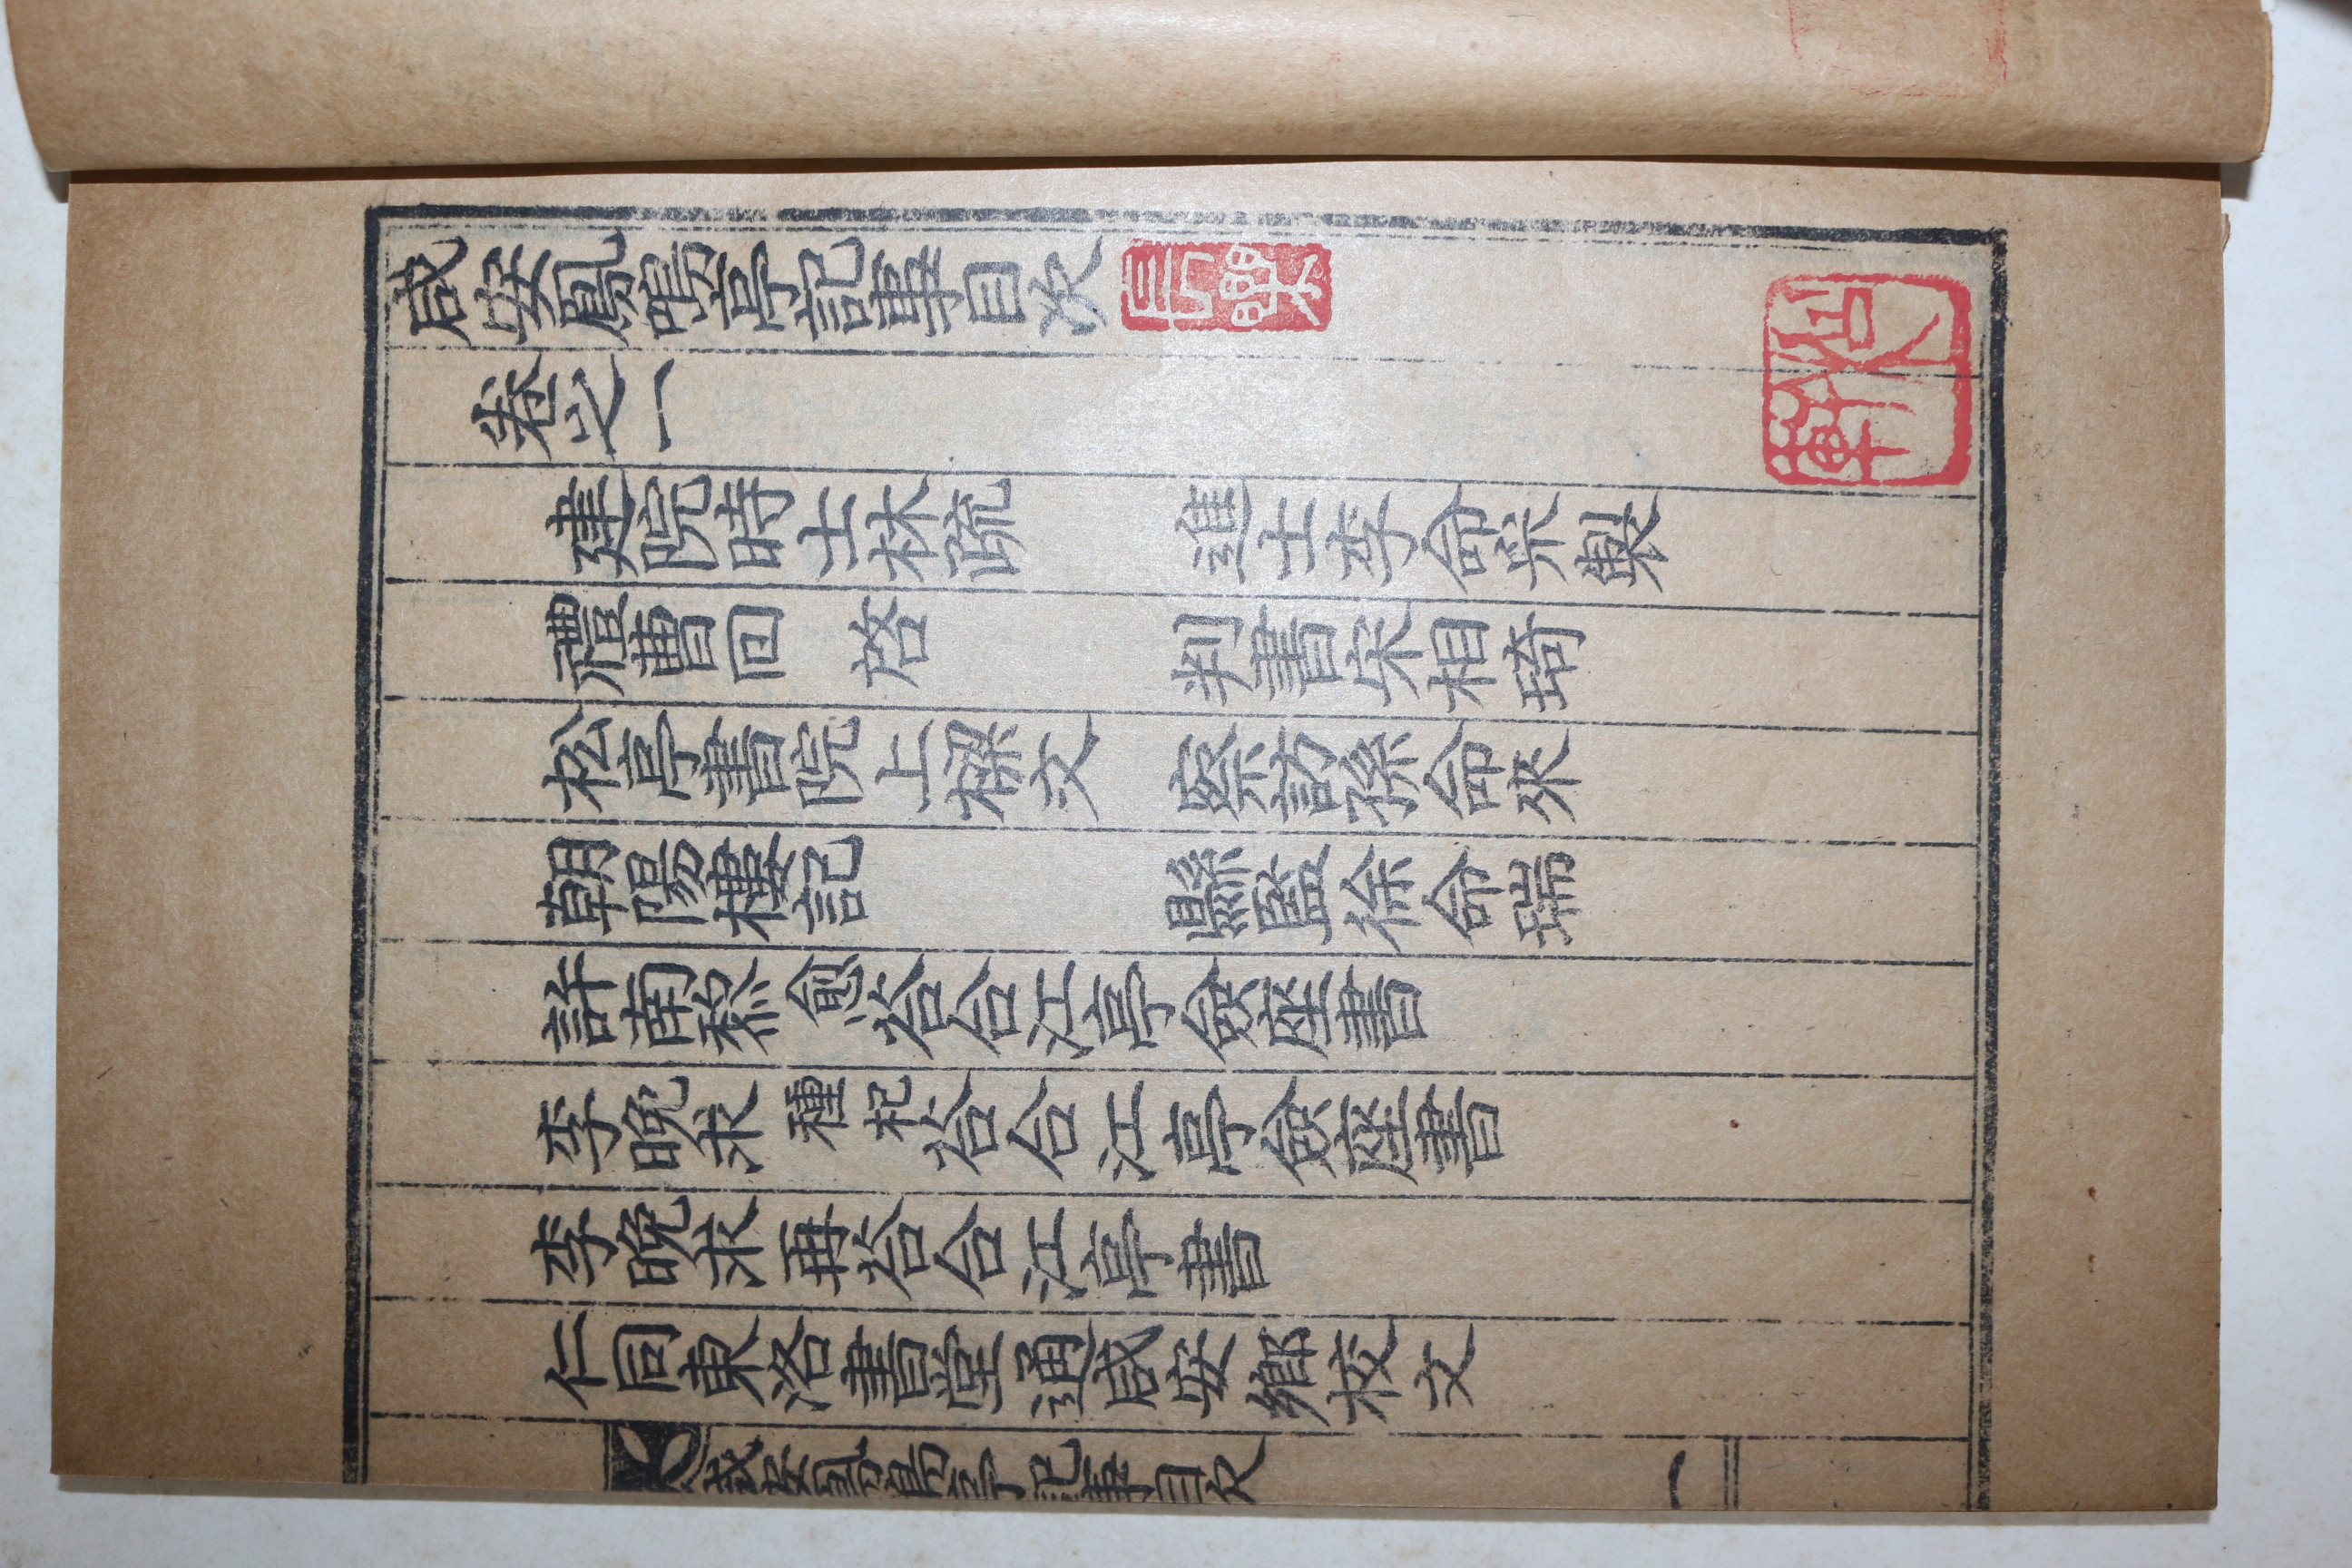 咸安鳳鳴亭記事目次
卷之一
建院時士林疏 進士李命㭆製
禮曹回 啓 判書宋相琦
松亭書院上樑文 察訪孫命來
朝陽樓記 縣監徐命瑞
許南黎愈荅合江亭僉座書
李晩求種杞荅合江亭僉座書
李晩求再荅合江亭書
仁同東洛書堂通咸安鄉校文
咸安鳳鳴亭記事目次
一
長樂
軒